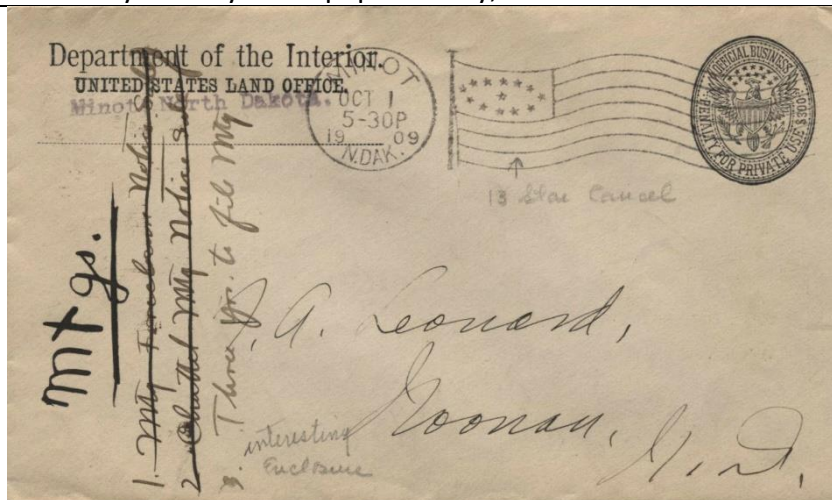 Department of the Interior.
UNITED STATES LAND OFFICE.
Minot, North Dakota.
MINOT
OCT 1
5-30P
19 09
N.DAK.
OFFICIAL BUSINESS
PENALTY FOR PRIVATE USE $300
13 Star Cancel
Mtgs.
1. Mtg Foreclosure Notice
2 Chattel Mtg Notice Sale
3. Three yrs. to file Mtg
J. A. Leonard,
Noonan,
N. D.
interesting
Enclosure